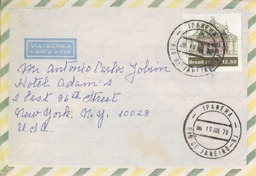 VIA AÉREA
PAR AVION
Mr Antonio Carlos Jobim
Hotel Adam's
2 East 86th Street
New York. N.Y. 10028
U.S.A.
Brasil
12.50
IPANEMA
19 JUL 78
RIO DE JANEIRO
IPANEMA
19 JUL 78
RIO DE JANEIRO